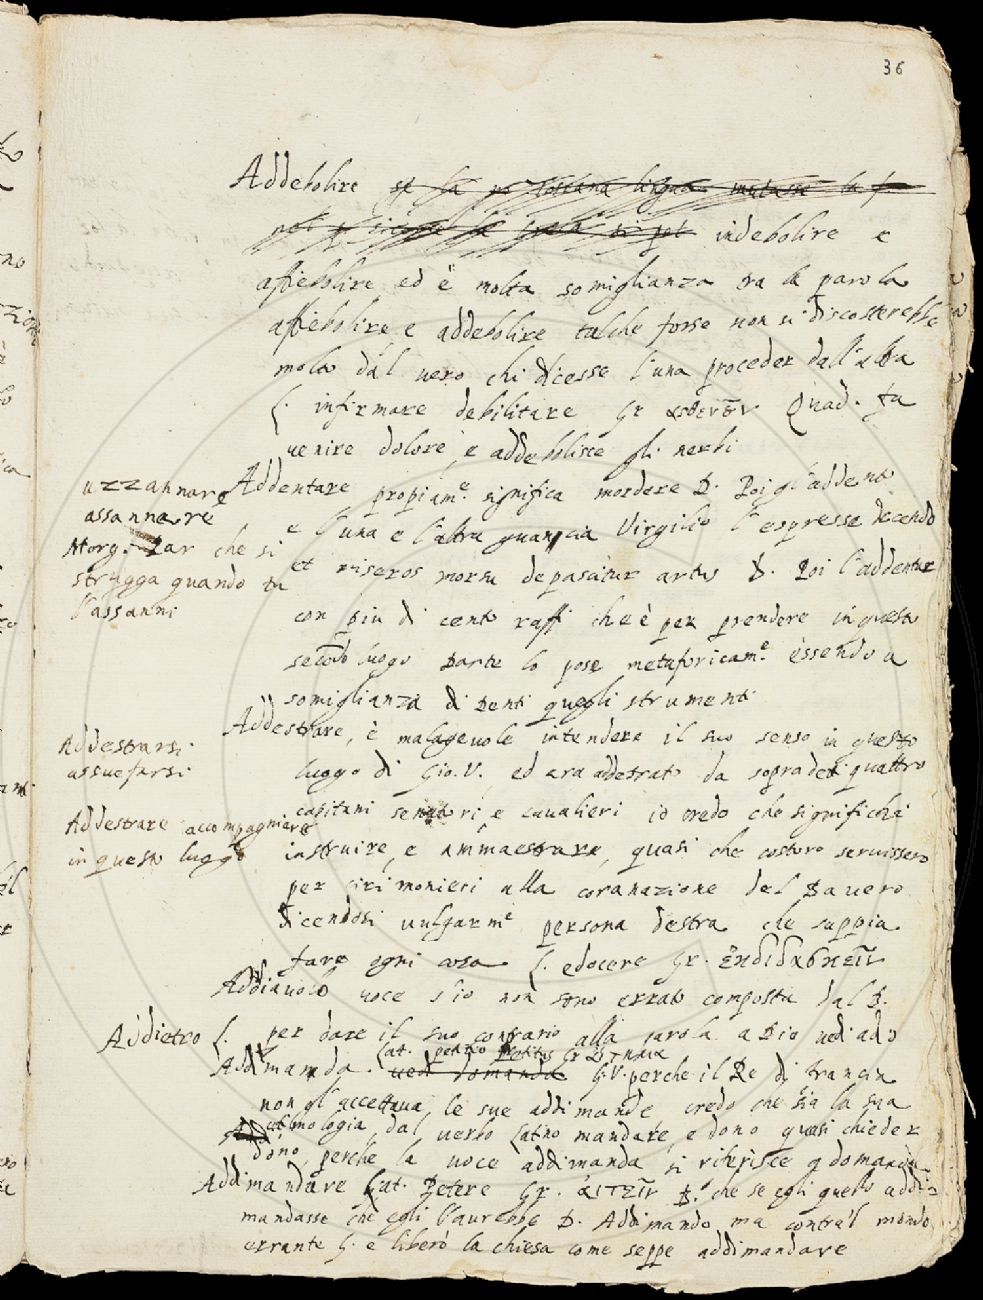 36
Addebolire
indebolire e
affiebolire ed è molta somiglianza tra la parola
affiebolire, e addebolire talche forse non si discosterebbe
molto dal uero chi dicesse l'una proceder dall'altra
L. infirmare debilitare Gr ασθενεῖν Quad. fa
uenire dolore, e addebolisce gli nerbi
uzzannare
assannare
Morg. Par che si
strugga quando tu
l'assanni
Addentare propiam.e significa mordere D. Poi gl'addentò
e l'una e l'altra guancia Virgilio l'espresse decendo
et miseros morsu depascitur artus D. Poi l'addentar
con piu di cento raffi che è per prendere in questo
secondo luogo Dante lo pose metaforicam.e essendo a
somiglianza di Denti quegli strumenti
Addestrarsi
assuefarsi
Addestrare accompagniare
in questo luogo
Addestrare, è malageuole intendere il suo senso in questo
luogo di Gio. V. ed era addestrato da sopradeti quattro
capitani senatori, e caualieri io credo che significhi
instruire, e ammaestrare, quasi che costoro seruissero
per cirimonieri alla coranazione del Bauero
dicendosi uulgarm.e persona destra che sappia
fare ogni cosa L. edocere Gr.
Addiauolo uoce s'io non sono errato composta dal D.
per dare il suo contrario alla parola a Dio uedi ado
Addietro L.
Lat. petitio
Addimanda. uedi domanda G.V. perche il Re di Francia
non gl'accettaua, le sue addimande, credo che sia la sua
etimologia, dal uerbo Latino mandare, e dono quasi chieder
dóno, perche la uoce addimanda si riferisce a domanda
Addimandare Lat. Petere Gr. ἀιτεῖν D. che se egli quello addi=
mandasse che egli l'aurebbe D. Addimandò, ma contra'l mondo
errante G. e liberò la chiesa come seppe addimandare